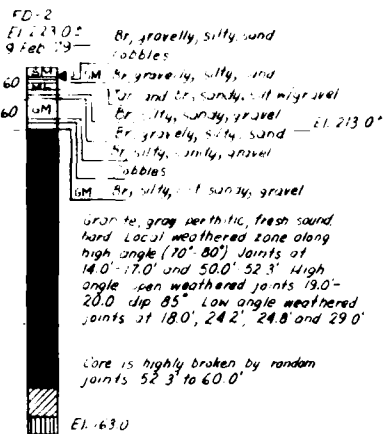 FD-2
El. 223.0±
9 Feb 79
Br, gravelly, silty, sand
Cobbles
SM
GM Br, gravelly, silty, sand
60
ML
Tan and br, sandy, silt w/gravel
Br, silty, sandy, gravel
El. 213.0±
60
GM
Br, gravely, silty, sand
Br, silty, sandy, gravel
Cobbles
GM Br, silty, sandy, gravel
Granite, gray perthitic, fresh sound,
hard. Local weathered zone along
high angle (70°-80°) Joints at
14.0'-17.0' and 50.0'-52.3' High
angle open weathered joints 19.0'-
20.0 dip 85° Low angle weathered
joints at 18.0', 24.2', 24.8' and 29.0'
Core is highly broken by random
joints 52.3' to 60.0'
El. 163.0